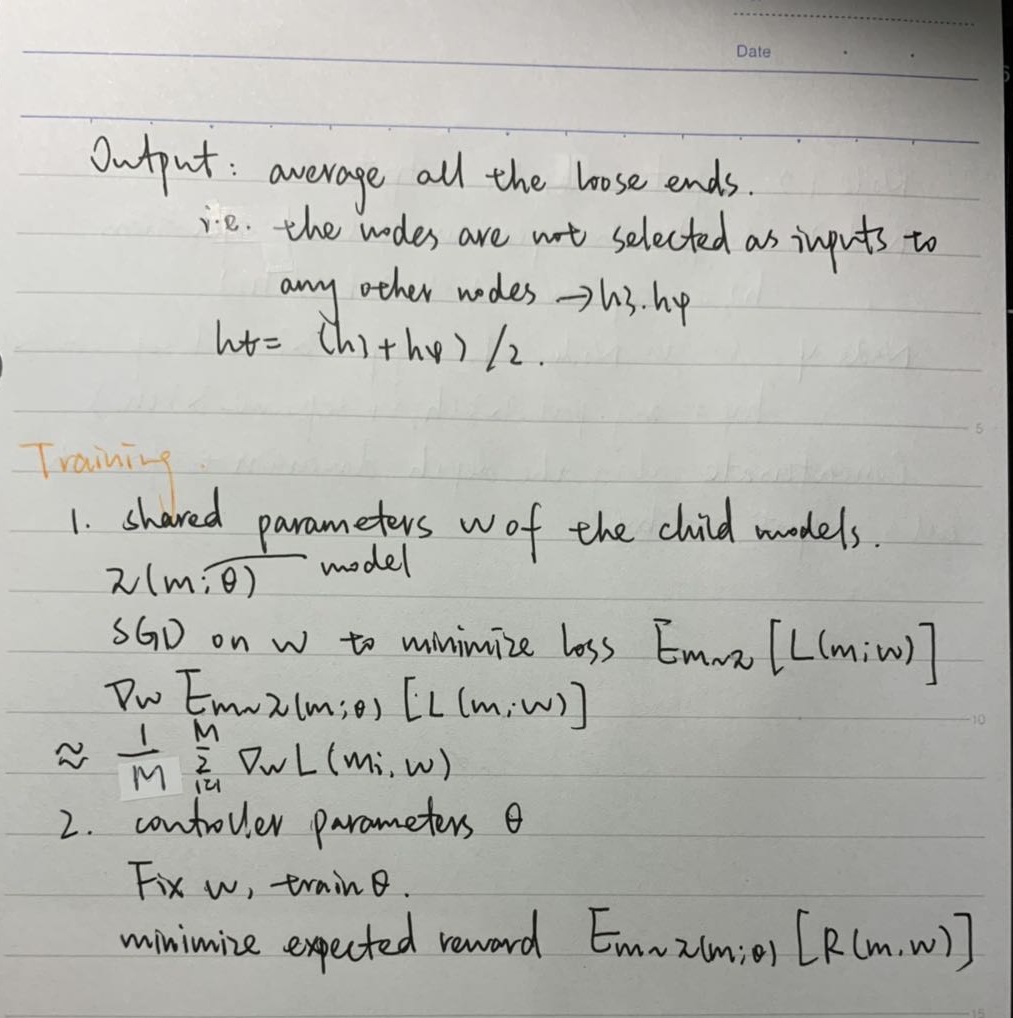 Date
Output: average all the loose ends.
i.e. the nodes are not selected as inputs to
any other nodes → h3. h4
ht = (h3 + h4) / 2.
5
Training.
1. shared parameters w of the child models.
π(m; θ) model
SGD on w to minimize loss Em~π [L(m;w)]
∇w Em~π(m;θ) [L(m;w)]
10
≈ 1/M M Σ i=1 ∇w L(mi, w)
2. controller parameters θ
Fix w, train θ.
minimize expected reward Em~π(m;θ) [R(m,w)]
15